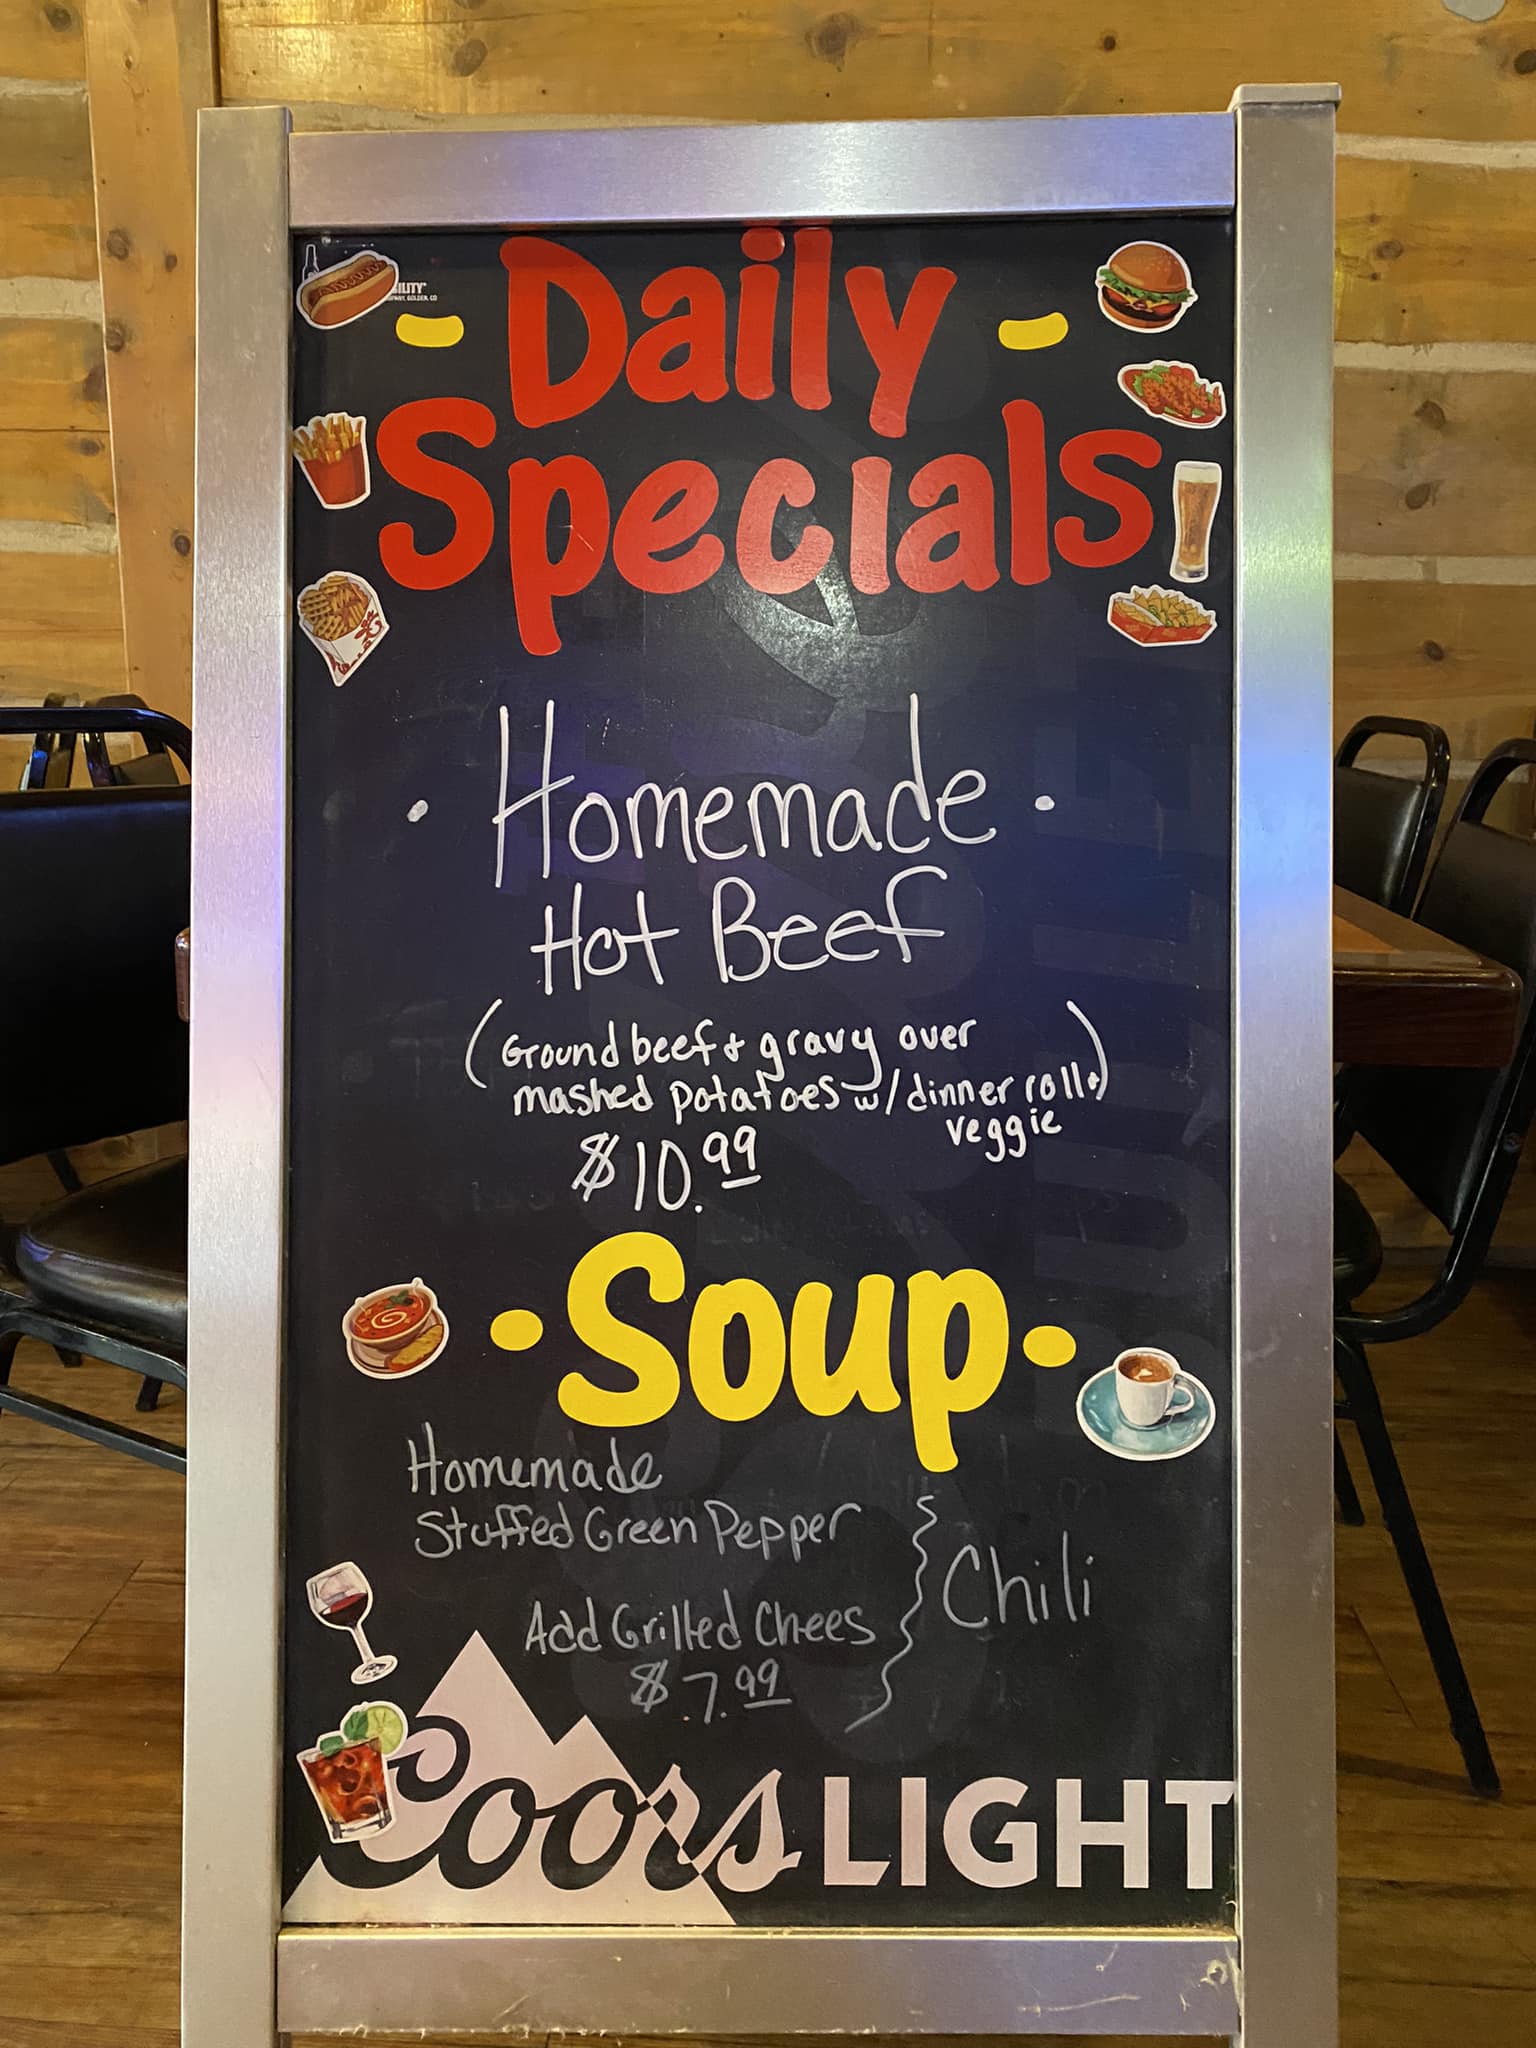 BILITY®
MPANY, GOLDEN, CO
Daily
Specials
Homemade
Hot Beef
(Ground beef + gravy over
mashed potatoes w/ dinner roll +
veggie)
$10.99
Soup
Homemade
Stuffed Green Pepper
Chili
Add Grilled Chees
$.7.99
Coors LIGHT